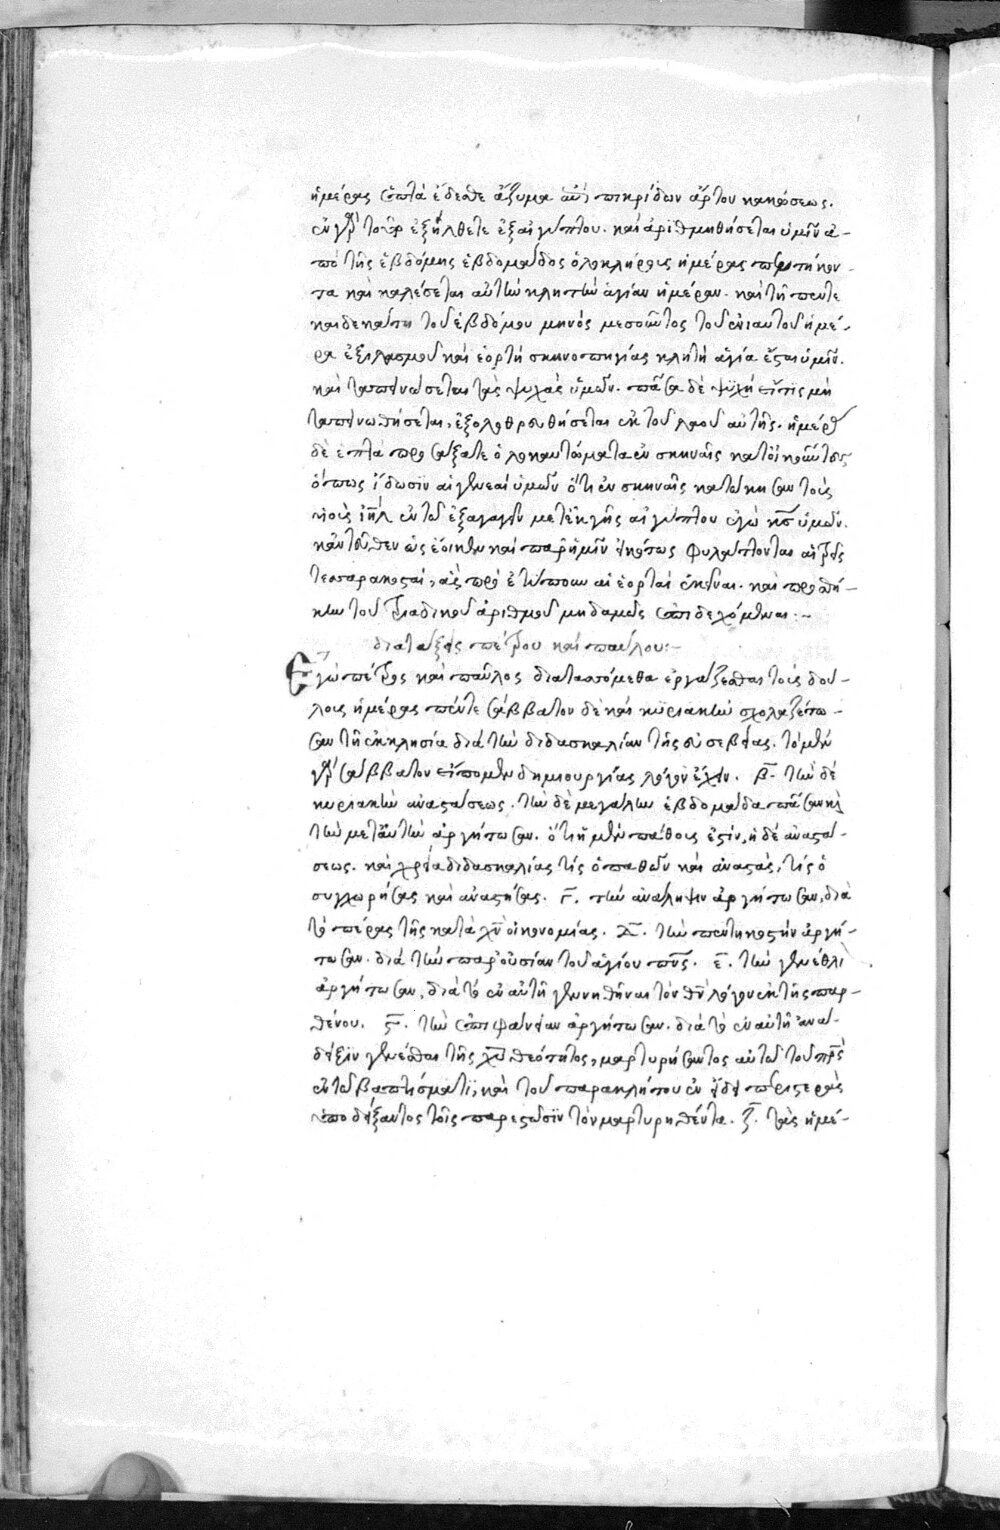 ἡμέρας ἑπτὰ ἔδεσθε ἄζυμα ἀντὶ πικρίδων ἄρτον κακώσεως.
ἐν γὰρ τούτῳ ἐξήλθετε ἐξ αἰγύπτου. καὶ ἀριθμηθήσεται ὑμῖν ἀ-
πὸ τῆς ἑβδόμης ἑβδομάδος ὁλοκλήρους ἡμέρας πεντήκον-
τα καὶ καλέσεται αὐτὴν κλητὴν ἁγίαν ἡμέραν. καὶ τῇ πεντε
καιδεκάτῃ τοῦ ἑβδόμου μηνὸς μεσοῦντος τοῦ ἐνιαυτοῦ ἡμέ-
ρα ἐξιλασμοῦ καὶ ἑορτὴ σκηνοπηγίας κλητὴ ἁγία ἔσται ὑμῖν.
καὶ ταπεινώσεται τὰς ψυχὰς ὑμῶν. πᾶσα δὲ ψυχὴ εἴτις μὴ
ταπεινωθήσεται, ἐξολοθρευθήσεται ἐκ τοῦ λαοῦ αὐτῆς. ἡμέρας
δὲ ἑπτὰ προσάξατε ὁλοκαυτώματα ἐν σκηναῖς κατοικοῦντες
ὅπως ἴδωσιν αἱ γενεαὶ ὑμῶν ὅτι ἐν σκηναῖς κατώκησαν τοὺς
υἱοὺς ἰηλ ἐν τῷ ἐξαγαγεῖν με τὲκ γῆς αἰγύπτου ἐγὼ κς ὑμῶν.
κἀντεῦθεν ὡς ἔοικεν καὶ παρ' ἡμῖν εἰκότως φυλάττονται αἱ τρεῖς
τεσσαρακοσταί, ἃς προετύπουν αἱ ἑορταὶ ἐκεῖναι. καὶ προσθή-
κην τοῦ τριαδικοῦ ἀριθμοῦ μηδαμῶς ἐπιδεχόμεναι:~
διατάξεις πέτρου καὶ παύλου:-
Ἐγὼ πέτρος καὶ παῦλος διατασσόμεθα ἐργάζεσθαι τοὺς δού-
λους ἡμέρας πέντε σάββατον δὲ καὶ κυριακὴν σχολαζέτω-
σαν τῇ ἐκκλησίᾳ διὰ τὴν διδασκαλίαν τῆς εὐσεβείας. τὸ μὲν
γὰρ σάββατον εἴπομεν δημιουργίας λόγον ἔχειν. β. τὴν δὲ
κυριακὴν ἀναστάσεως. τὴν δὲ μεγάλην ἑβδομάδα πᾶσαν κὶ
τὴν μετ' αὐτὴν ἀργήτωσαν. ὅτι ἡ μὲν πάθους ἐστίν, ἡ δὲ ἀναστά-
σεως. καὶ χρεία διδασκαλίας τίς ὁ παθὼν καὶ ἀναστάς, τίς ὁ
συγχωρήσας καὶ ἀναστήσας. γ. τὴν ἀνάληψιν ἀργήτωσαν, διὰ
τὸ πέρας τῆς κατὰ χν οἰκονομίας. δ. τὴν πεντηκοστὴν ἀργή-
τωσαν. διὰ τὴν παρουσίαν τοῦ ἁγίου πνς. ε. τὴν γενέθλι
ἀργήτωσαν, διὰ τὸ ἐν αὐτῇ γεννηθῆναι τὸν θν λόγον ἐκ τῆς παρ-
θένου. ς. τὴν ἐπιφανείαν ἀργήτωσαν. διὰ τὸ ἐν αὐτῇ ἀνά-
δειξιν γενέσθαι τῆς χυ θεότητος, μαρτυρήσαντος αὐτῷ τοῦ πρς
ἐν τῷ βαπτίσματι, καὶ τοῦ παρακλήτου ἐν εἴδει περιστερᾶς
ὑποδείξαντος τοῖς παρεστῶσιν τὸν μαρτυρηθέντα. ζ. τὰς ἡμέ-